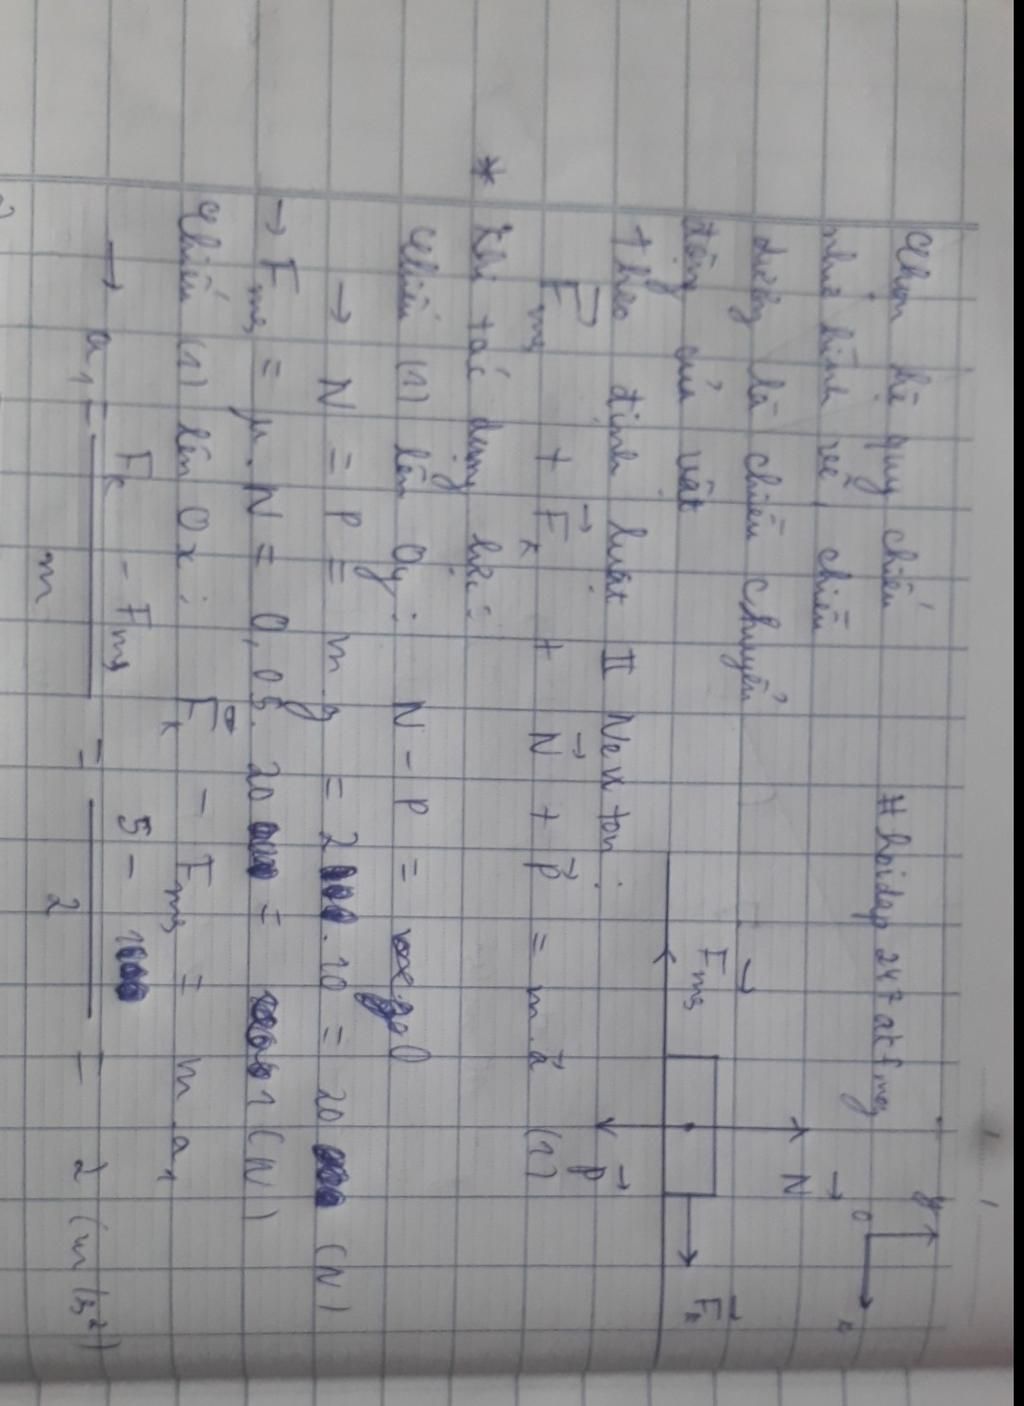 Chọn hệ quy chiếu
như hình vẽ, chiều
dương là chiều chuyển
động của vật
#hoidap247atfmeg
y
O
x
N
Fms
Fk
P
+ theo định luật II Newton:
Fms + Fk + N + P = m.a (1)
* Khi tác dụng lực:
Chiếu (1) lên Oy: N - P = 0
→ N = P = m.g = 2.10 = 20 (N)
→ Fms = μ.N = 0,05.20 = 1 (N)
Chiếu (1) lên Ox: Fk - Fms = m.a1
→ a1 = Fk - Fms / m = 5 - 1 / 2 = 2 (m/s²)